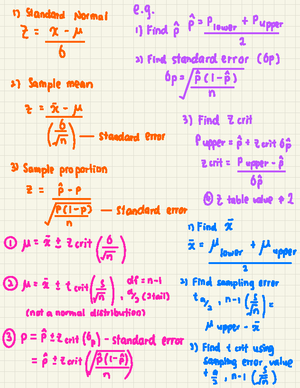 1) Standard Normal
z = x - μ
σ
2) Sample mean
z = x̄ - μ
(σ/√n) — standard error
3) Sample proportion
z = p̂ - p
√p(1-p)/n — standard error
① μ = x̄ ± z crit (σ/√n)
② μ = x̄ ± t crit (s/√n), df = n-1
α/2 (2tail)
(not a normal distribution)
③ p = p̂ ± z crit (σp) - standard error
= p̂ ± z crit (√p̂(1-p̂)/n)
e.g.
1) Find p̂ p̂ = P lower + P upper
2
2) Find standard error (σp)
σp = √p̂(1-p̂)
n
3) Find z crit
P upper = p̂ + z crit σp̂
z crit = P upper - p̂
σp̂
z table value × 2
1) Find x̄
x̄ = μ lower + μ upper
2
2) Find sampling error
t α/2, n-1 (s/√n) =
μ upper - x̄
3) Find t crit using
sampling error value
t α/2, n-1 (s/√n)